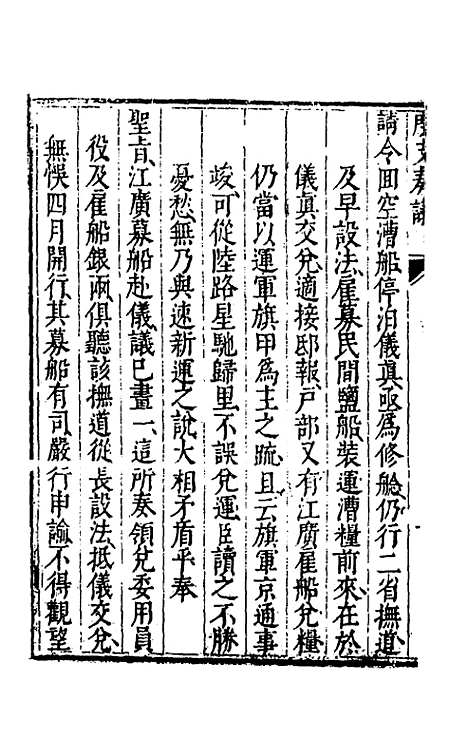 請令回空漕船停泊儀真亟為修艌仍行二省撫道
及早設法雇募民間鹽船裝運漕糧前來在於
儀真交兌適接邸報戶部又有江廣雇船兌糧
仍當以運軍旗甲為主之疏且云旗軍京通事
竣可從陸路星馳歸里不誤兌運臣讀之不勝
憂愁無乃與速新運之說大相矛盾乎奉
聖旨江廣募船赴儀議已畫一這所奏領兌委用員
役及雇船銀兩俱聽該撫道從長設法抵儀交兌
無悞四月開行其募船有司嚴行申諭不得觀望